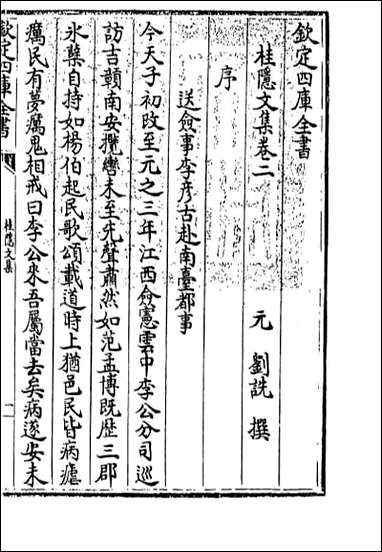 欽定四庫全書
桂隱文集卷二
元 劉詵 撰
序
送僉事李彦古赴南臺都事
今天子初改至元之三年江西僉憲雲中李公分司廵
訪吉贛南安攬轡未至先聲肅然如范孟博既歴三郡
氷蘗自持如楊伯起民歌頌載道時上猶邑民皆病瘧
癘民有夢癘鬼相戒曰李公來吾屬當去矣病遂安未
欽定四庫全書
桂隱文集